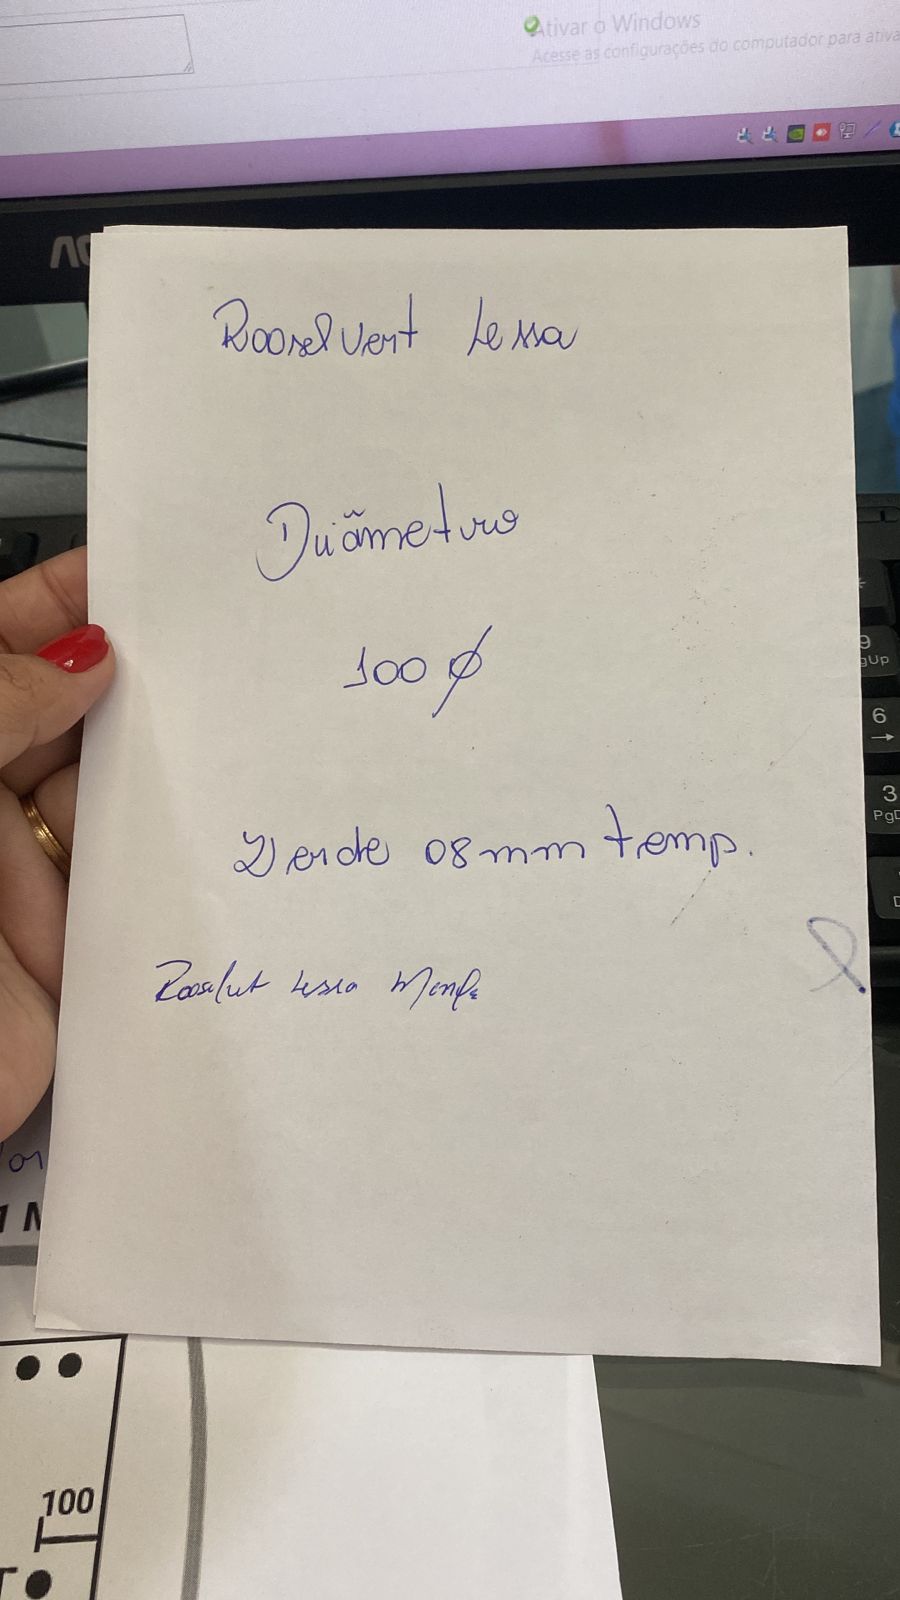 Ativar o Windows
Acesse as configurações do computador para ativa
AO
Rooselvert Lessa
Diâmetro
100 Ø
Verde 08mm temp.
Lessa
9
gUp
6
→
3
PgD
1 M
100